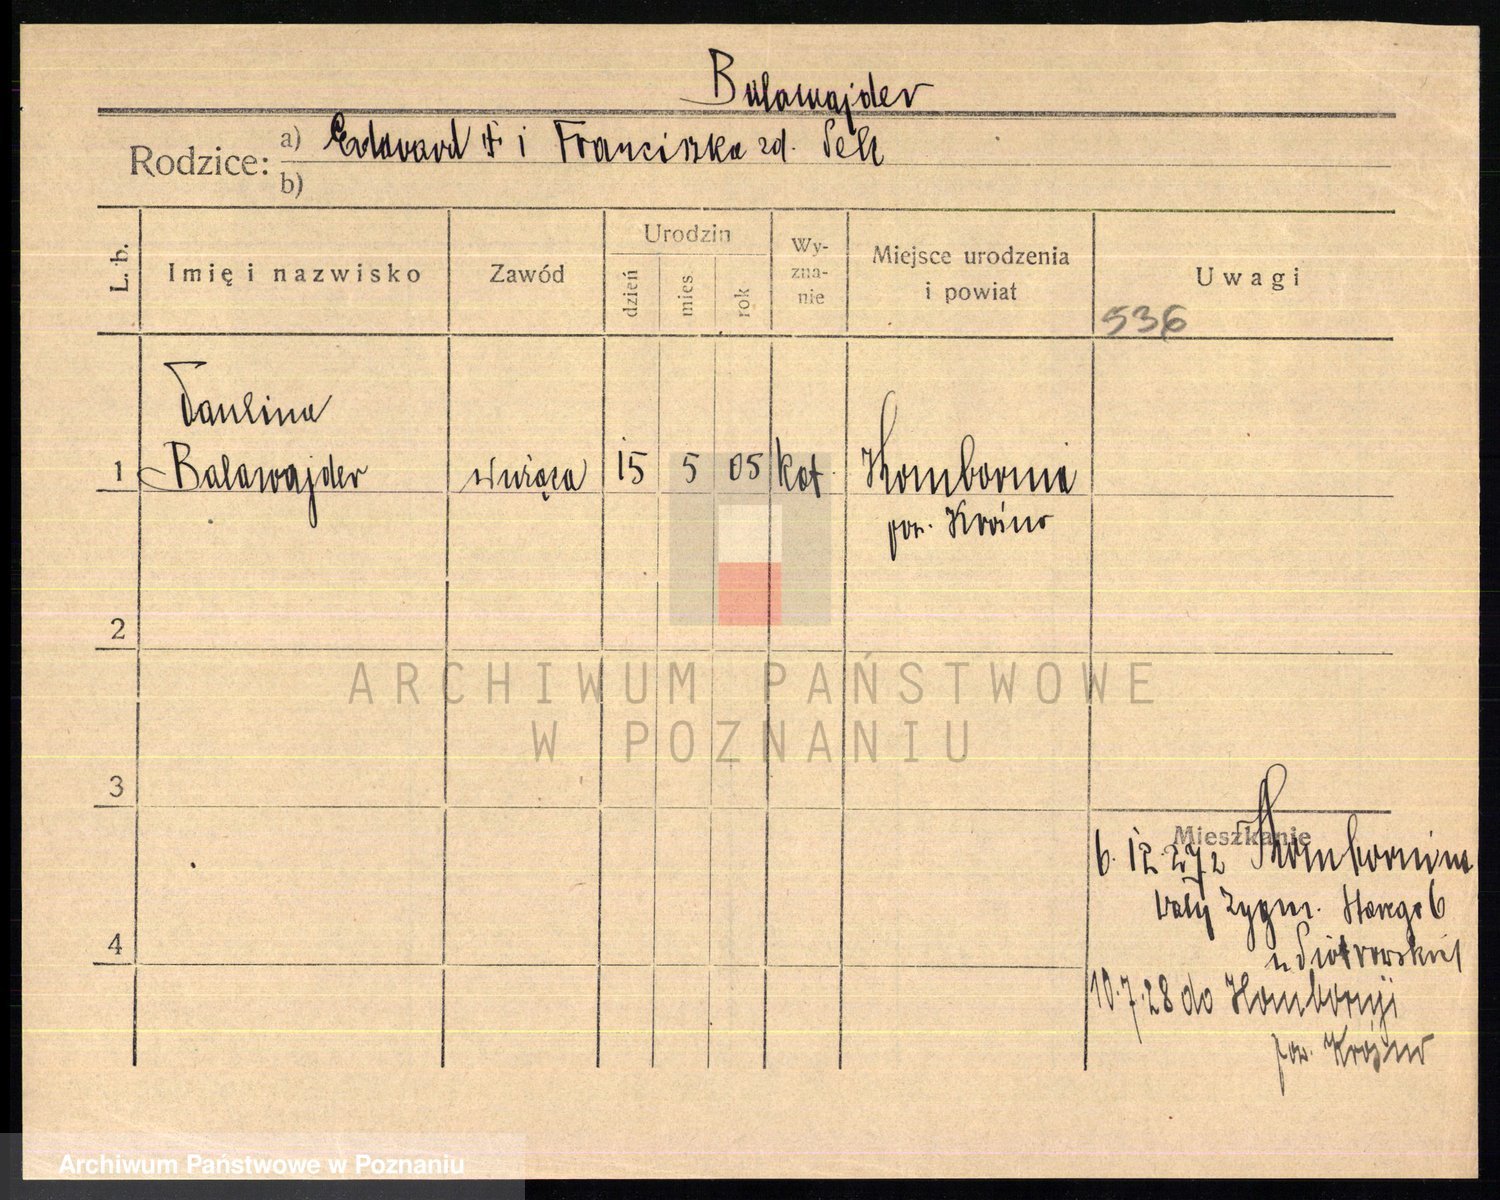 Balawajder
Rodzice: a) Edward † i Franciszka zd.
b)
L. b.
Imię i nazwisko
Zawód
Urodzin
dzień
mies.
rok
Wy-
zna-
nie
Miejsce urodzenia
i powiat
Uwagi
536
Paulina
1 Balawajder służąca 15 5 05 kat. Hombornia
pow. Krosno
2
3
4
Mieszkanie
6. 12. 27 z
Wały Zygm. Starego 6
u
10.7.28 do Hombornji
pow. Krosno
ARCHIWUM PAŃSTWOWE
W POZNANIU
Archiwum Państwowe w Poznaniu